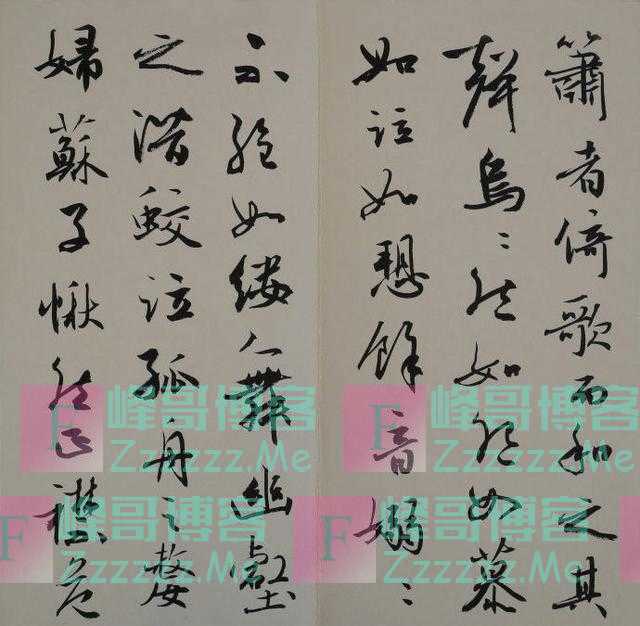 簫者倚歌而和之其
聲烏々然如怨如慕
如泣如愬餘音嫋々
不絕如縷舞幽壑
之潛蛟泣孤舟之嫠
婦蘇子愀然正襟危
F 峰哥博客
Zzzzzz.Me
F 峰哥博客
Zzzzzz.Me
F 峰哥博客
Zzzzzz.Me
F 峰哥博客
Zzzzzz.Me